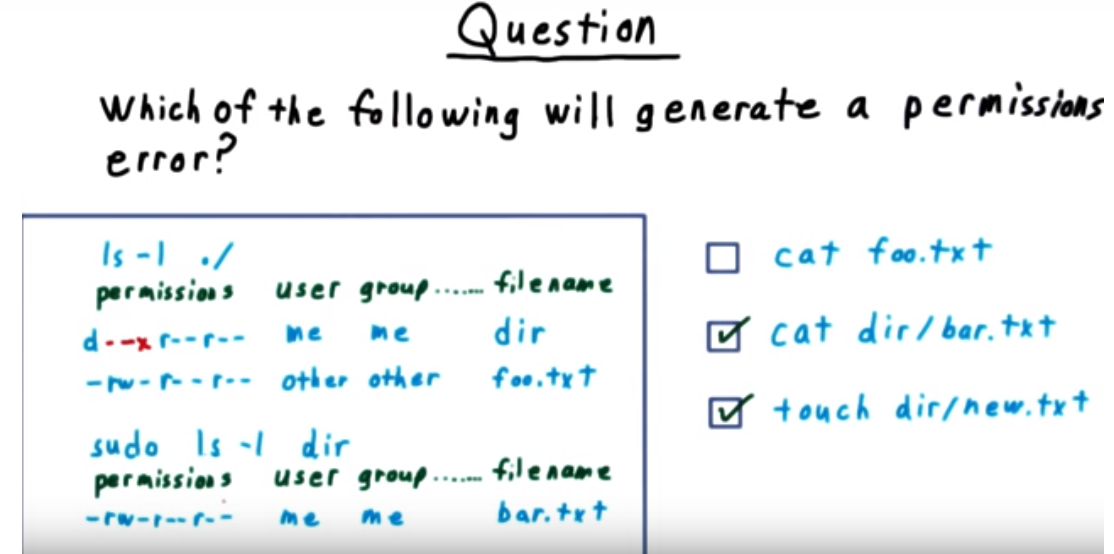 Question
Which of the following will generate a permissions
error?
ls -l ./
permissions user group....... filename
d--xr--r-- me me dir
-rw-r--r-- other other foo.txt
sudo ls -l dir
permissions user group....... filename
-rw-r--r-- me me bar.txt
cat foo.txt
cat dir/bar.txt
touch dir/new.txt